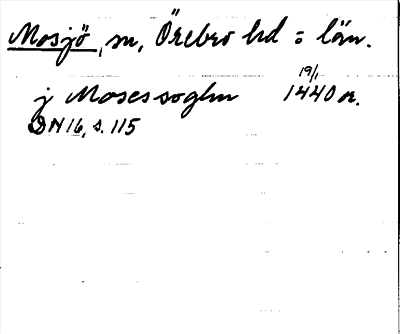 Mosjö, sn, Örebro hd o län.
19/1
j Moses soghn 1440 n.
DN 16, s. 115